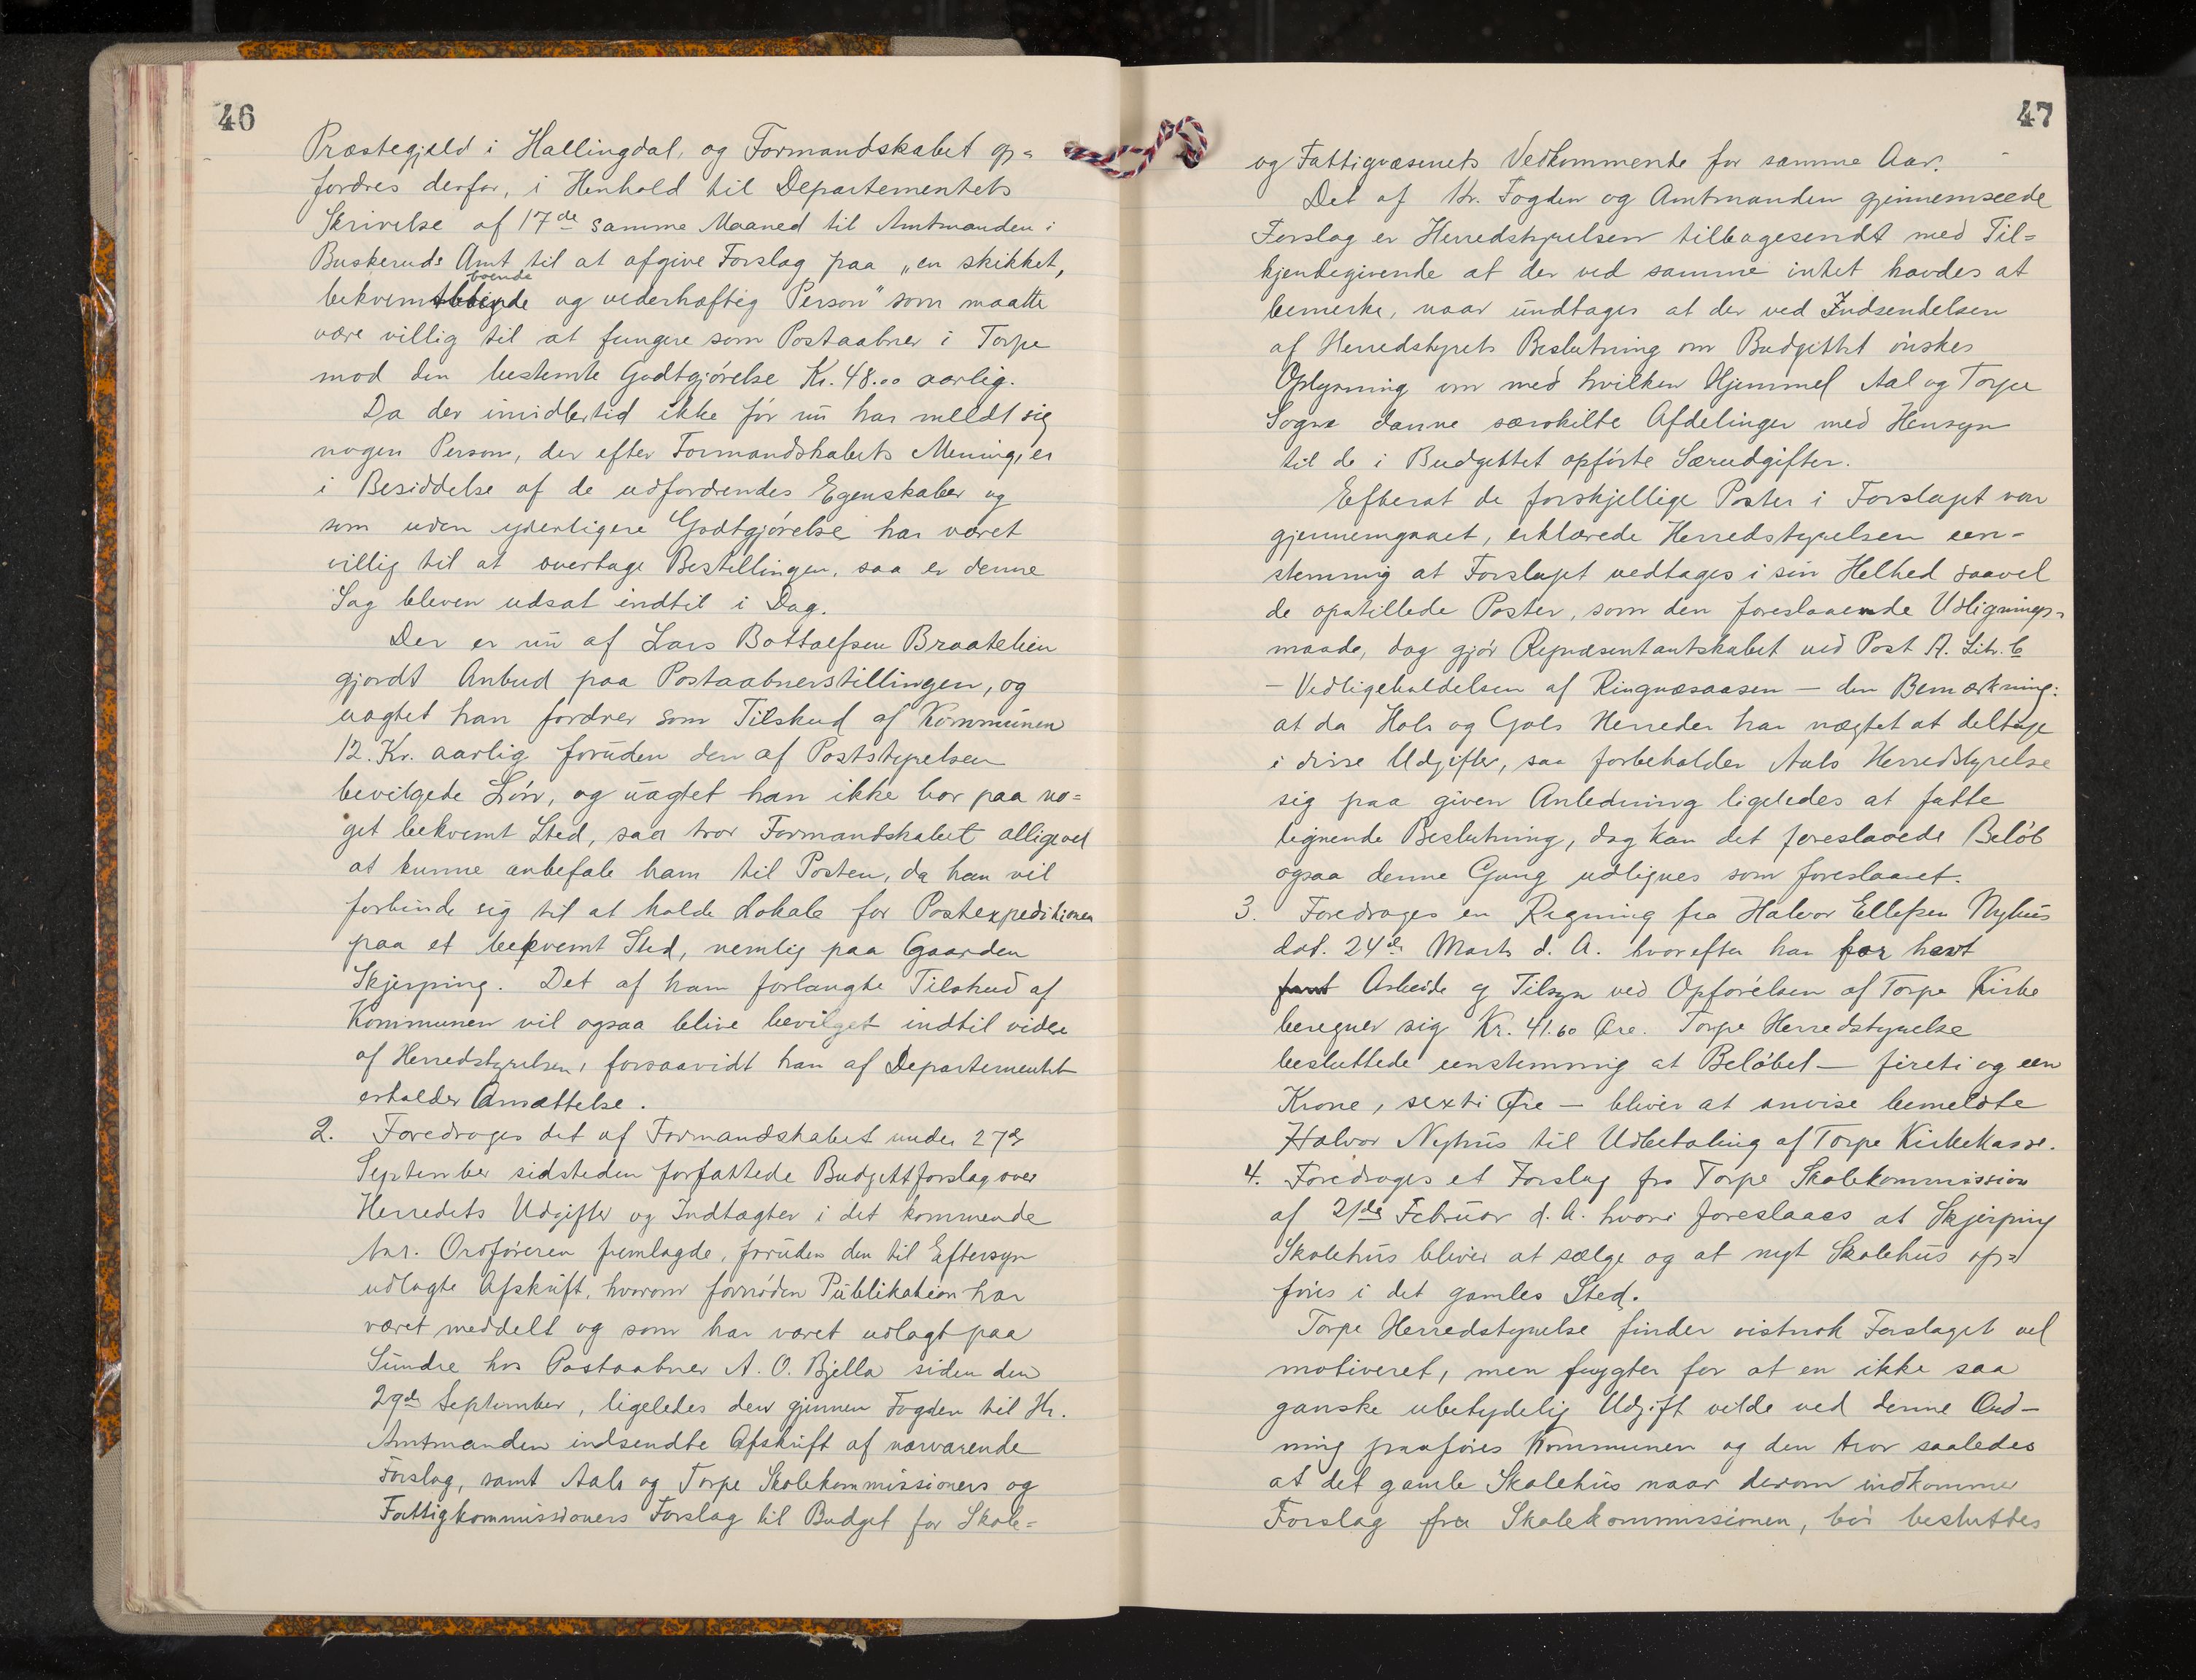 46
Præstegjeld i Hallingdal, og Formandskabet op=
fordres derfor, i Henhold til Departementets
Skrivelse af 17de samme Maaned til Amtmanden i
Buskeruds Amt til at afgive Forslag paa „en skikket,
bekvemt boende og vederhæftig Person" som maatte
være villig til at fungere som Postaabner i Torpe
mod den bestemte Godtgjørelse Kr. 48.00 aarlig.
Da der imidlertid ikke før nu har meldt sig
nogen Person, der efter Formandskabets Mening, er
i Besiddelse af de udfordrendes Egenskaber og
som uden yderligere Godtgjørelse har været
villig til at overtage Bestillingen, saa er denne
Sag bleven udsat indtil i Dag.
Der er nu af Lars Bottolfsen Braatelien
gjordt Anbud paa Postaabnerstillingen, og
uagtet han fordrer som Tilskud af Kommunen
12. Kr. aarlig foruden den af Poststyrelsen
bevilgede Løn, og uagtet han ikke bor paa no=
get bekvemt Sted, saa tror Formandskabet alligevel
at kunne anbefale ham til Posten, da han vil
forbinde sig til at holde Lokale for Postexpeditionen
paa et bekvemt Sted, nemlig paa Gaarden
Skjerping. Det af ham forlangte Tilskud af
Kommunen vil ogsaa blive bevilget indtil videre
af Herredstyrelsen, forsaavidt han af Departementet
erholder Ansættelse.
2. Foredroges det af Formandskabet under 27de
September sidsteden forfattede Budgettforslag over
Herredets Udgifter og Indtægter i det kommende
Aar. Ordføreren fremlagde, foruden den til Eftersyn
udlagte Afskrift, hvorom fornøden Publikation har
været meddelt og som har været udlagt paa
Sundre hos Postaabner A. O. Bjella siden den
29de September, ligeledes den gjennem Fogden til Hr.
Amtmanden indsendte Afskrift af nærværende
Forslag, samt Aals og Torpe Skolekommissioners og
Fattigkommissioners Forslag til Budget for Skole=
47
og Fattigvæsenets Vedkommende for samme Aar.
Det af Hr. Fogden og Amtmanden gjennemseede
Forslag er Herredstyrelsen tilbagesendt med Til=
kjendegivende at der ved samme intet havdes at
bemerke, naar undtages at der ved Indsendelsen
af Herredstyrets Beslutning om Budgettet ønskes
Oplysning om med hvilken Hjemmel Aal og Torpe
Sogne danne særskilte Afdelinger med Hensyn
til de i Budgettet opførte Særudgifter.
Efterat de forskjellige Poster i Forslaget var
gjennemgaaet, erklærede Herredstyrelsen een-
stemmig at Forslaget vedtages i sin Helhed saavel
de opstillede Poster, som den foreslaaende Udlignings=
maade, dog gjør Repræsentantskabet ved Post A. Litr. b
- Vedligeholdelsen af Ringnæsaasen - den Bemærkning:
at da Hols og Gols Herreder har nægtet at deltage
i disse Udgifter, saa forbeholder Aals Herredstyrelse
sig paa given Anledning ligeledes at fatte
lignende Beslutning, dog kan det foreslaaede Beløb
ogsaa denne Gang udlignes som foreslaaet.
3. Foredroges en Regning fra Halvor Ellefsen Nyhus
dat. 24de Marts d. A. hvorefter han for havt
Arbeide og Tilsyn ved Opførelsen af Torpe Kirke
beregner sig Kr. 41.60 Øre. Torpe Herredstyrelse
besluttede eenstemmig at Beløbet - fireti og een
Krone, sexti Øre - bliver at anvise bemeldte
Halvor Nyhus til Udbetaling af Torpe Kirkekasse.
4. Foredroges et Forslag fra Torpe Skolekommission
af 21de Februar d. A. hvori foreslaaes at Skjerping
Skolehus bliver at sælge og at nyt Skolehus op=
føres i det gamles Sted.
Torpe Herredstyrelse finder vistnok Forslaget vel
motiveret, men frygter for at en ikke saa
ganske ubetydelig Udgift vilde ved denne Ord-
ning paaføres Kommunen og den tror saaledes
at det gamle Skolehus naar derom indkommer
Forslag fra Skolekommissionen, bør besluttes